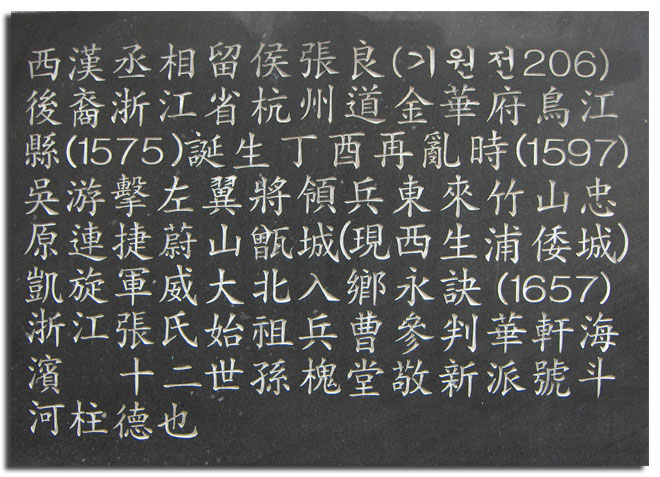 西漢丞相留侯張良(기원전206)
後裔浙江省杭州道金華府烏江
縣(1575)誕生丁酉再亂時(1597)
吳游擊左翼將領兵東來竹山忠
原連捷蔚山甑城(現西生浦倭城)
凱旋軍威大北入鄉永訣(1657)
浙江張氏始祖兵曹參判華軒海
濱 十二世孫槐堂敬新派號斗
河柱德也